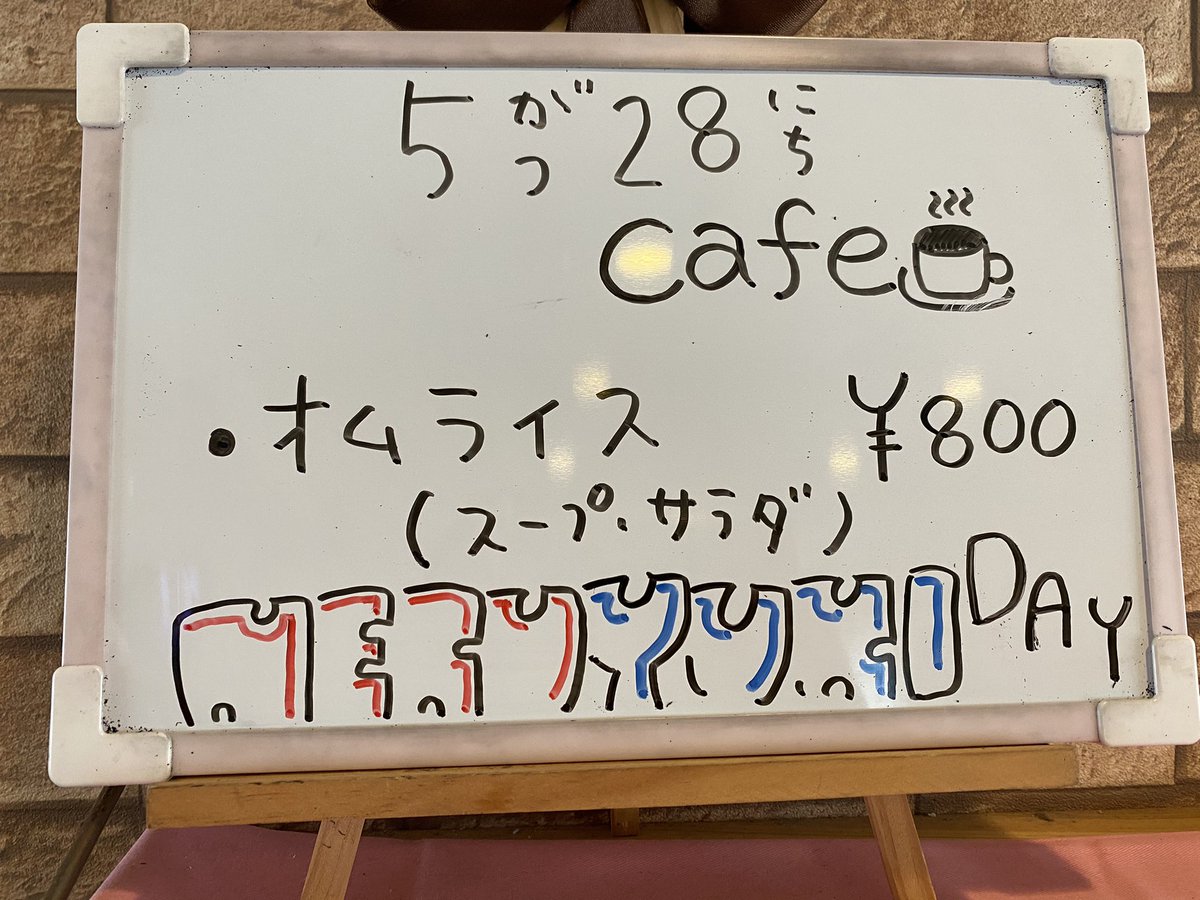 5がつ28にち
cafe
・オムライス ¥800
(スープ・サラダ)
DAY